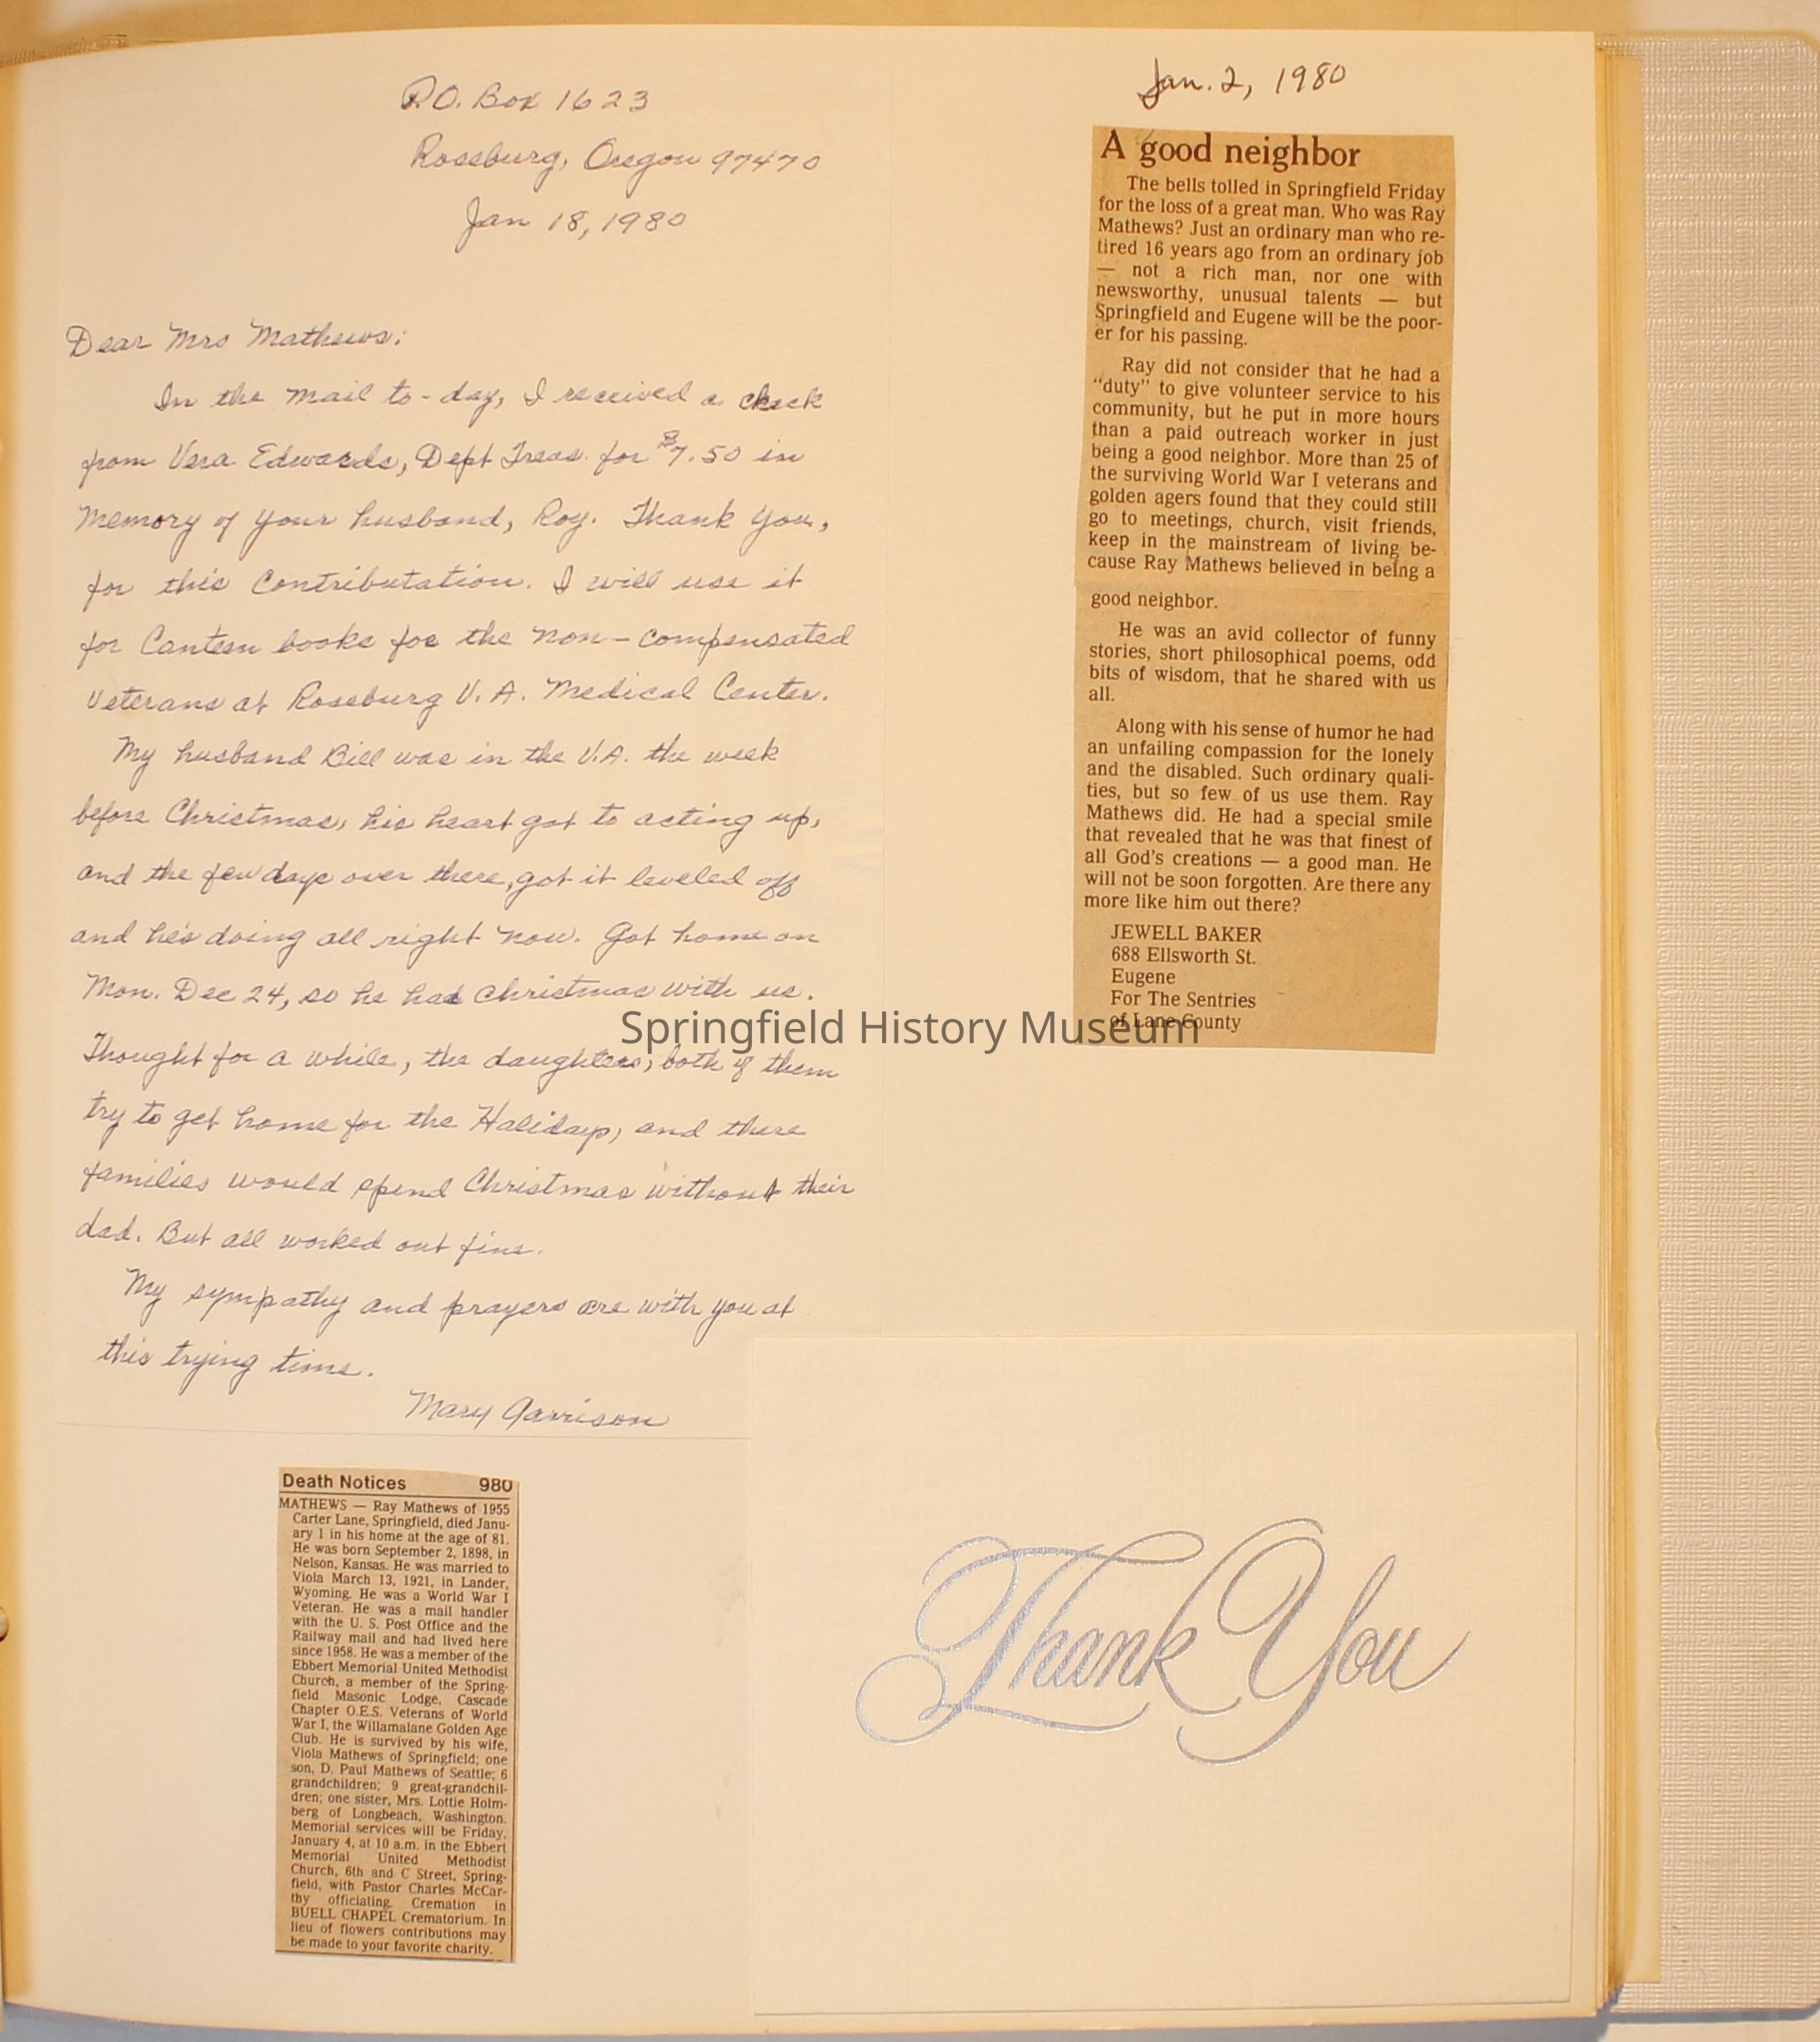 P.O. Box 1623
Roseburg, Oregon 97470
Jan 18, 1980
Dear Mrs Mathews:
In the mail to-day, I received a check
from Vera Edwards, Dept Treas. for $7.50 in
Memory of your husband, Roy. Thank You,
for this Contributation. I will use it
for Canteen books for the non-compensated
Veterans at Roseburg V.A. Medical Center.
My husband Bill was in the V.A. the week
before Christmas, his heart got to acting up,
and the few days over there, got it leveled off
and he's doing all right now. Got home on
Mon. Dec 24, so he had Christmas with us.
Thought for a while, the daughters, both of them
try to get home for the Holidays, and there
families would spend Christmas without their
dad. But all worked out fine.
My sympathy and prayers are with you at
this trying time.
Mary Garrison
Jan. 2, 1980
A good neighbor
The bells tolled in Springfield Friday
for the loss of a great man. Who was Ray
Mathews? Just an ordinary man who re-
tired 16 years ago from an ordinary job
— not a rich man, nor one with
newsworthy, unusual talents — but
Springfield and Eugene will be the poor-
er for his passing.
Ray did not consider that he had a
"duty" to give volunteer service to his
community, but he put in more hours
than a paid outreach worker in just
being a good neighbor. More than 25 of
the surviving World War I veterans and
golden agers found that they could still
go to meetings, church, visit friends,
keep in the mainstream of living be-
cause Ray Mathews believed in being a
good neighbor.
He was an avid collector of funny
stories, short philosophical poems, odd
bits of wisdom, that he shared with us
all.
Along with his sense of humor he had
an unfailing compassion for the lonely
and the disabled. Such ordinary quali-
ties, but so few of us use them. Ray
Mathews did. He had a special smile
that revealed that he was that finest of
all God's creations — a good man. He
will not be soon forgotten. Are there any
more like him out there?
JEWELL BAKER
688 Ellsworth St.
Eugene
For The Sentries
of Lane County
Springfield History Museum
Death Notices 980
MATHEWS — Ray Mathews of 1955
Carter Lane, Springfield, died Janu-
ary 1 in his home at the age of 81.
He was born September 2, 1898, in
Nelson, Kansas. He was married to
Viola March 13, 1921, in Lander,
Wyoming. He was a World War I
Veteran. He was a mail handler
with the U. S. Post Office and the
Railway mail and had lived here
since 1958. He was a member of the
Ebbert Memorial United Methodist
Church, a member of the Spring-
field Masonic Lodge, Cascade
Chapter O.E.S. Veterans of World
War I, the Willamalane Golden Age
Club. He is survived by his wife,
Viola Mathews of Springfield; one
son, D. Paul Mathews of Seattle; 6
grandchildren; 9 great-grandchil-
dren; one sister, Mrs. Lottie Holm-
berg of Longbeach, Washington.
Memorial services will be Friday,
January 4, at 10 a.m. in the Ebbert
Memorial United Methodist
Church, 6th and C Street, Spring-
field, with Pastor Charles McCar-
thy officiating. Cremation in
BUELL CHAPEL Crematorium. In
lieu of flowers contributions may
be made to your favorite charity.
Thank You